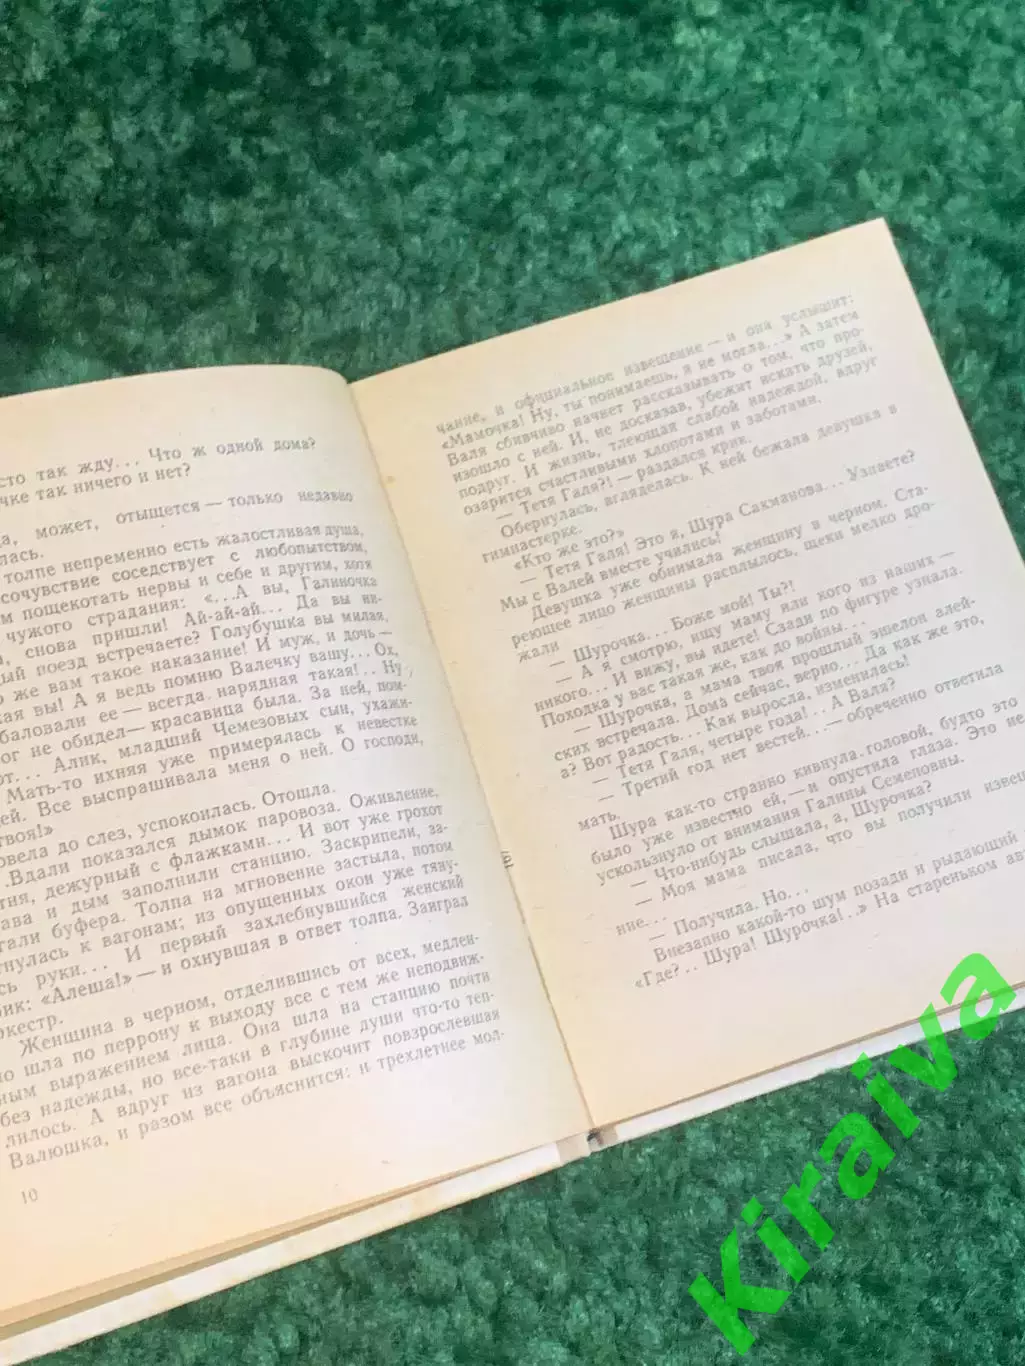 сто так жду... Что ж одной дома?
чке так ничего и нет?
а, может, отыщется — только недавно
лась.
толпе непременно есть жалостливая душа,
сочувствие соседствует с любопытством,
м пощекотать нервы и себе и другим, хотя
чужого страдания: «...А вы, Галиночка
а, снова пришли! Ай-ай-ай... Да вы ни-
ый поезд встречаете? Голубушка вы милая,
о же вам такое наказание! И муж, и дочь —
кая вы! А я ведь помню Валечку вашу... Ох,
баловали ее — всегда нарядная такая!.. Ну
ог не обидел — красавица была. За ней, пом-
от... Алик, младший Чемезовых сын, ухажи-
Мать-то ихняя уже примерялась к невестке
ей. Все выспрашивала меня о ней. О господи,
твоя!»
овела до слез, успокоилась. Отошла.
.Вдали показался дымок паровоза. Оживление,
тня, дежурный с флажками... И вот уже грохот
ава и дым заполнили станцию. Заскрипели, за-
тали буфера. Толпа на мгновение застыла, потом
нулась к вагонам; из опущенных окон уже тяну-
сь руки... И первый захлебнувшийся женский
рик: «Алеша!» — и охнувшая в ответ толпа. Заиграл
ркестр.
Женщина в черном, отделившись от всех, медлен-
но шла по перрону к выходу все с тем же неподвиж-
ным выражением лица. Она шла на станцию почти
без надежды, но все-таки в глубине души что-то теп-
лилось. А вдруг из вагона выскочит повзрослевшая
Валюшка, и разом все объяснится: и трехлетнее мол-
10
чание, и официальное извещение — и она услышит:
«Мамочка! Ну, ты понимаешь, я не могла...» А затем
Валя сбивчиво начнет рассказывать о том, что про-
изошло с ней. И, не досказав, убежит искать друзей,
подруг. И жизнь, тлеющая слабой надеждой, вдруг
озарится счастливыми хлопотами и заботами.
— Тетя Галя?! — раздался крик.
Обернулась, вгляделась. К ней бежала девушка в
гимнастерке.
«Кто же это?»
— Тетя Галя! Это я, Шура Сакманова... Узнаете?
Мы с Валей вместе учились!
Девушка уже обнимала женщину в черном. Ста-
реющее лицо женщины расплылось, щеки мелко дро-
жали
— Шурочка... Боже мой! Ты?!
— А я смотрю, ищу маму или кого из наших —
никого... И вижу, вы идете! Сзади по фигуре узнала.
Походка у вас такая же, как до войны...
— Шурочка, а мама твоя прошлый эшелон алей-
ских встречала. Дома сейчас, верно... Да как же это,
а? Вот радость... Как выросла, изменилась!
— Тетя Галя, четыре года!.. А Валя?
— Третий год нет вестей... — обреченно ответила
мать.
Шура как-то странно кивнула головой, будто это
было уже известно ей, — и опустила глаза. Это не
ускользнуло от внимания Галины Семеповны.
— Что-нибудь слышала, а, Шурочка?
— Моя мама писала, что вы получили извеш
ние...
— Получила. Но...
Внезапно какой-то шум позади и рыдающий
«Где?.. Шура! Шурочка!..» На стареньком ав
Kiraiva